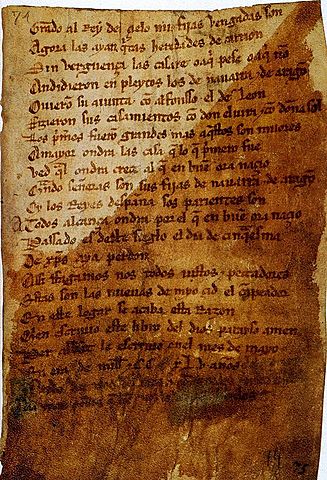 74
Grado al Rey del çielo mis fijas vengadas son
Agora las ayan q̃tas heredades de carrion
Sin verguença las casare o aq̃ pese o aq̃ nõ
Andidieron en pleytos los de nauarra ⁊ de aragõ
Ouierõ su aiunta cõ alfonsso el de leon
Fizieron sus casamientos cõ don eluira ⁊ cõ doña sol
Los pⁱmos fuerõ grandes mas aq̃stos son miiores
A mayor ondra las casa q̃ lo q̃ pⁱmero fue
Ved q̃l ondra creçe al q̃ en buẽ ora naçio
Qⁿdo señoras son sus fijas de nauarra ⁊ de aragõ
Oy los Reyes despaña sos parientes son
A todos alcança ondra por el q̃ en buẽ ora naçio
Passado es deste sieglo el dia de cinq̃esma
De xp̃s aya perdon
Assi ffagamos nos todos iustos ⁊ peccadores
Estas son las nueuas de myo çid el cãpeador
En este logar se acaba esta razon
Quien escriuio este libro del dios parayso amen
Per abbat le escriuio en el mes de mayo
En era de mill ⁊ .C.C xL.v. anos